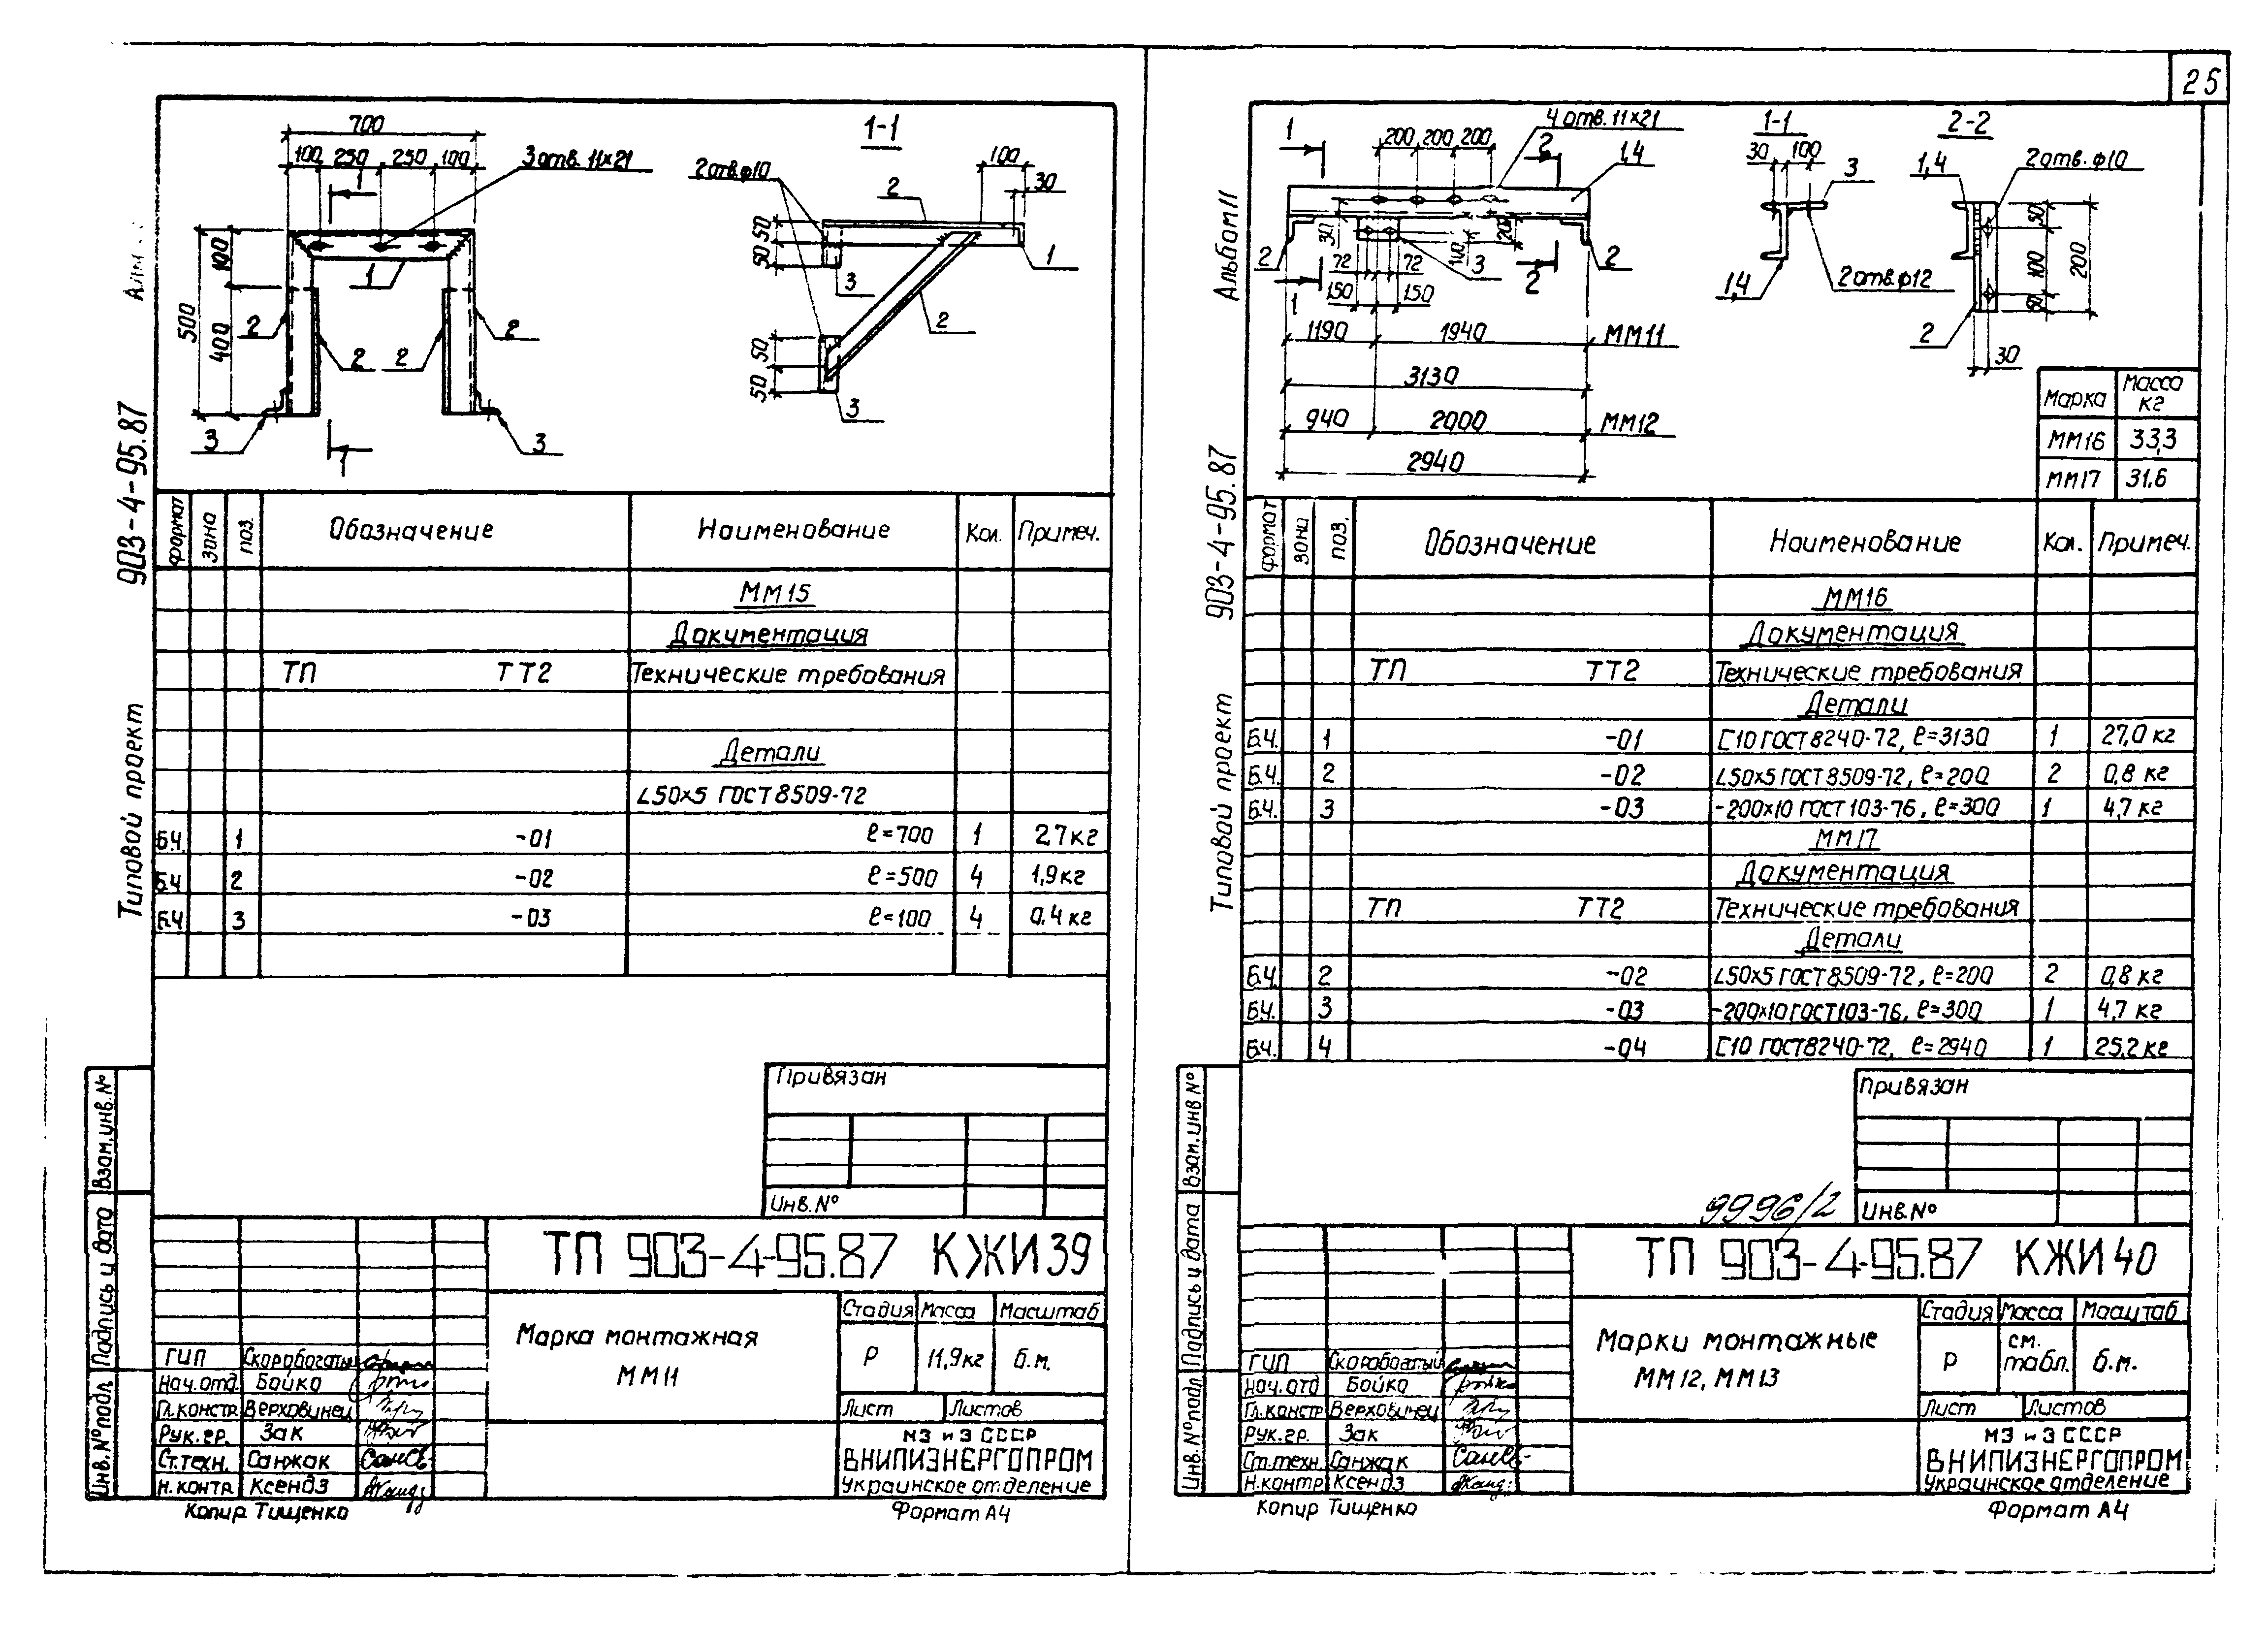 25
700
100 250 250 100
1
3 отв. 11×21
500
100
400
1
2
2
2
2
3
3
1
1-1
2 отв. ф10
2
100
30
50
50
50
50
3
1
2
3
903-4-95.87
Типовой проект
формат зона поз. Обозначение Наименование Кол. Примеч.
ММ15
Документация
ТП ТТ2 Технические требования
Детали
L50×5 ГОСТ 8509-72
Б.Ч. 1 -01 ℓ=700 1 2,7 кг
Б.Ч. 2 -02 ℓ=500 4 1,9 кг
Б.Ч. 3 -03 ℓ=100 4 0.4 кг
Привязан
Инв.№
Взам.инв.№
Подпись и дата
Инв.№ подл.
ТП 903-4-95.87 КЖИ 39
Марка монтажная
ММ11
Стадия Масса Масштаб
Р 11,9 кг б.м.
Лист Листов
МЭ и Э СССР
ВНИПИЭНЕРГОПРОМ
Украинское отделение
ГИП Скоробогатый
Нач.отд. Бойко
Гл.констр. Верховинец
Рук.гр. Зак
Ст.техн. Санжак
Н.контр. Ксендз
Копир Тищенко
Формат А4
Альбом 11
903-4-95.87
Типовой проект
1
200 200 200
4 отв. 11×21
2
1,4
30
200
140
2
2
72 72
3
150 150
1
2
1190 1940 ММ11
3130
940 2000 ММ12
2940
1-1
30 100
3
1,4
2 отв. ф12
2-2
1,4
2 отв. ф10
50
100
50
200
2
30
Марка Масса кг
ММ16 33,3
ММ17 31,6
формат зона поз. Обозначение Наименование Кол. Примеч.
ММ16
Документация
ТП ТТ2 Технические требования
Детали
Б.Ч. 1 -01 [10 ГОСТ 8240-72, ℓ=3130 1 27,0 кг
Б.Ч. 2 -02 L50×5 ГОСТ 8509-72, ℓ=200 2 0,8 кг
Б.Ч. 3 -03 -200×10 ГОСТ 103-76, ℓ=300 1 4,7 кг
ММ17
Документация
ТП ТТ2 Технические требования
Детали
Б.Ч. 2 -02 L50×5 ГОСТ 8509-72, ℓ=200 2 0,8 кг
Б.Ч. 3 -03 -200×10 ГОСТ 103-76, ℓ=300 1 4,7 кг
Б.Ч. 4 -04 [10 ГОСТ 8240-72, ℓ=2940 1 25,2 кг
Привязан
9996/2
Инв.№
Взам.инв №
Подпись и дата
Инв.№ подл
ТП 903-4-95.87 КЖИ 40
Марки монтажные
ММ12, ММ13
Стадия Масса Масштаб
Р см. табл. б.м.
Лист Листов
МЭ и Э СССР
ВНИПИЭНЕРГОПРОМ
Украинское отделение
ГИП Скоробогатый
Нач.отд Бойко
Гл.констр Верховинец
Рук.гр. Зак
Ст.техн. Санжак
Н.контр Ксендз
Копир Тищенко
Формат А4